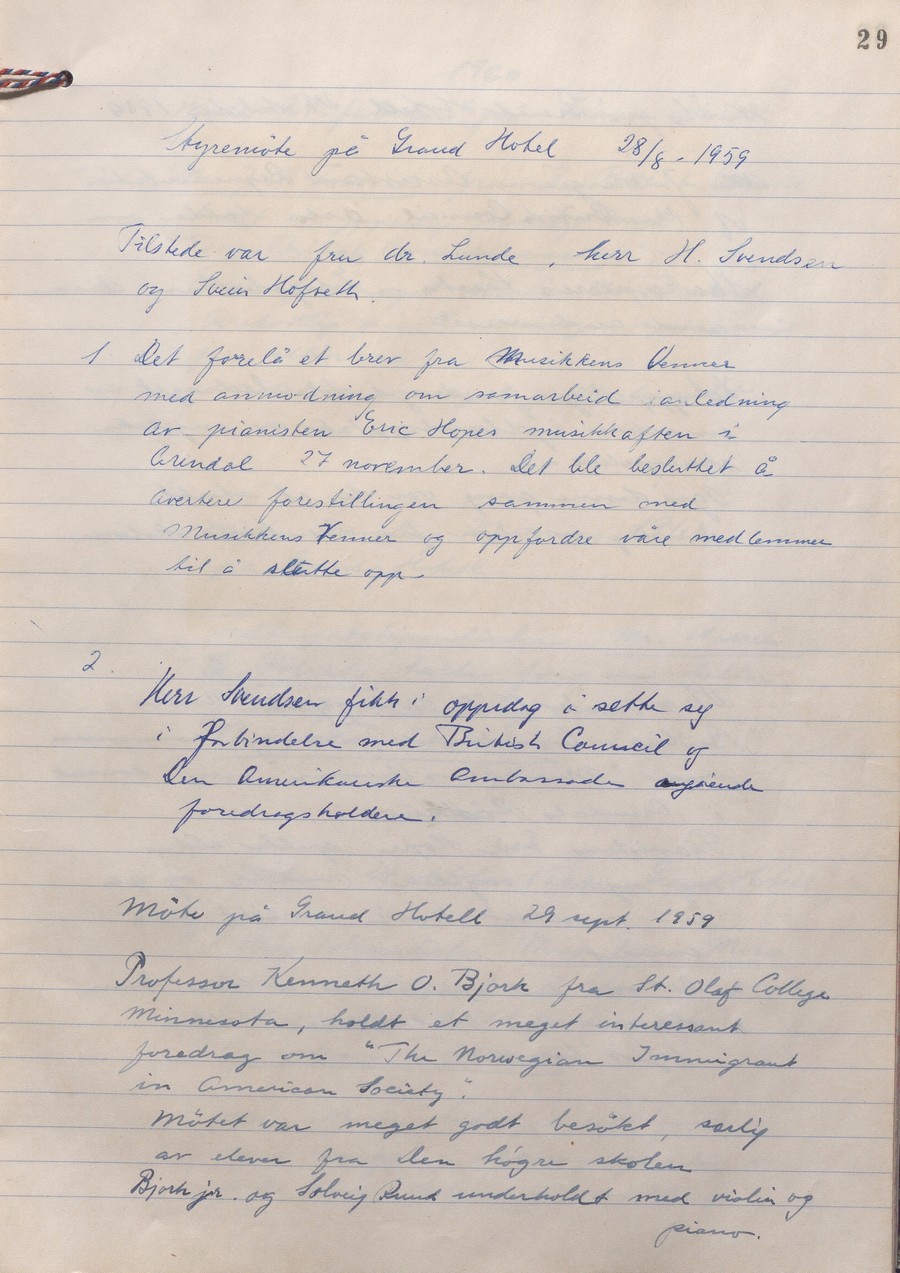 29
Styremöte på Grand Hotel 28/8 - 1959
Tilstede var fru dr. Lunde, herr H. Svendsen
og Svein Hofseth.
1 Det forelå et brev fra Musikkens Venner
med anmodning om samarbeid i anledning
av pianisten Eric Hopes musikkaften i
Arendal 27 november. Det ble besluttet å
avertere forestillingen sammen med
Musikkens Venner og oppfordre våre medlemmer
til å slutte opp.
2.
Herr Svendsen fikk i oppdrag å sette seg
i forbindelse med British Council og
Den Amerikanske Ambassade angående
foredragsholdere.
Möte på Grand Hotell 29 sept. 1959
Professor Kenneth O. Bjork fra St. Olaf College
Minnesota, holdt et meget interessant
foredrag om "The Norwegian Immigrant
in American Society".
Mötet var meget godt besökt, særlig
av elever fra Den högre skolen
Bjork jr. og Solveig Ruud underholdt med violin og
piano.